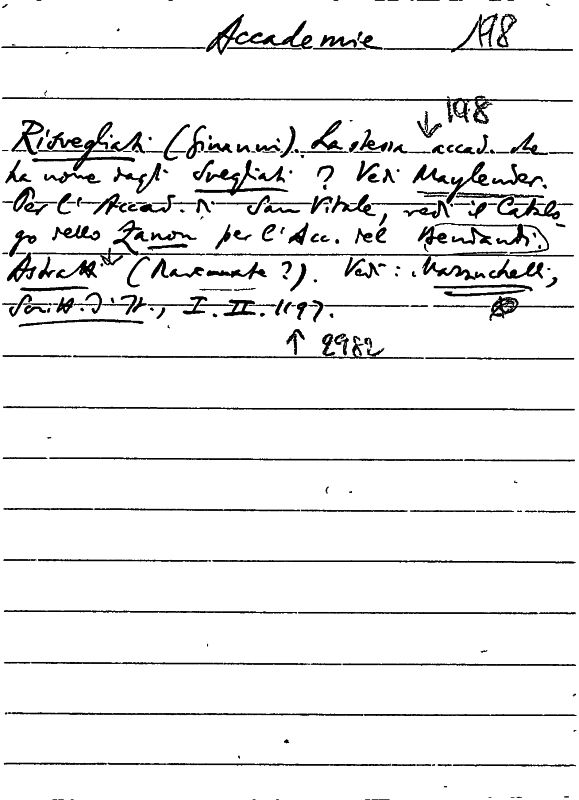 Accademie 198
↓ 198
Risvegliati (Ginanni). La stessa accad. che
ha nome dagli Svegliati ? Vedi Maylender.
Per l'Accad. di San Vitale, vedi il Catalo-
go dello Zanon per l'Acc. del Bendandi.
Astratti (Ravennate ?). Vedi : Mazzuchelli,
Scritt. d'It., I. II. 1197.
↑ 2982